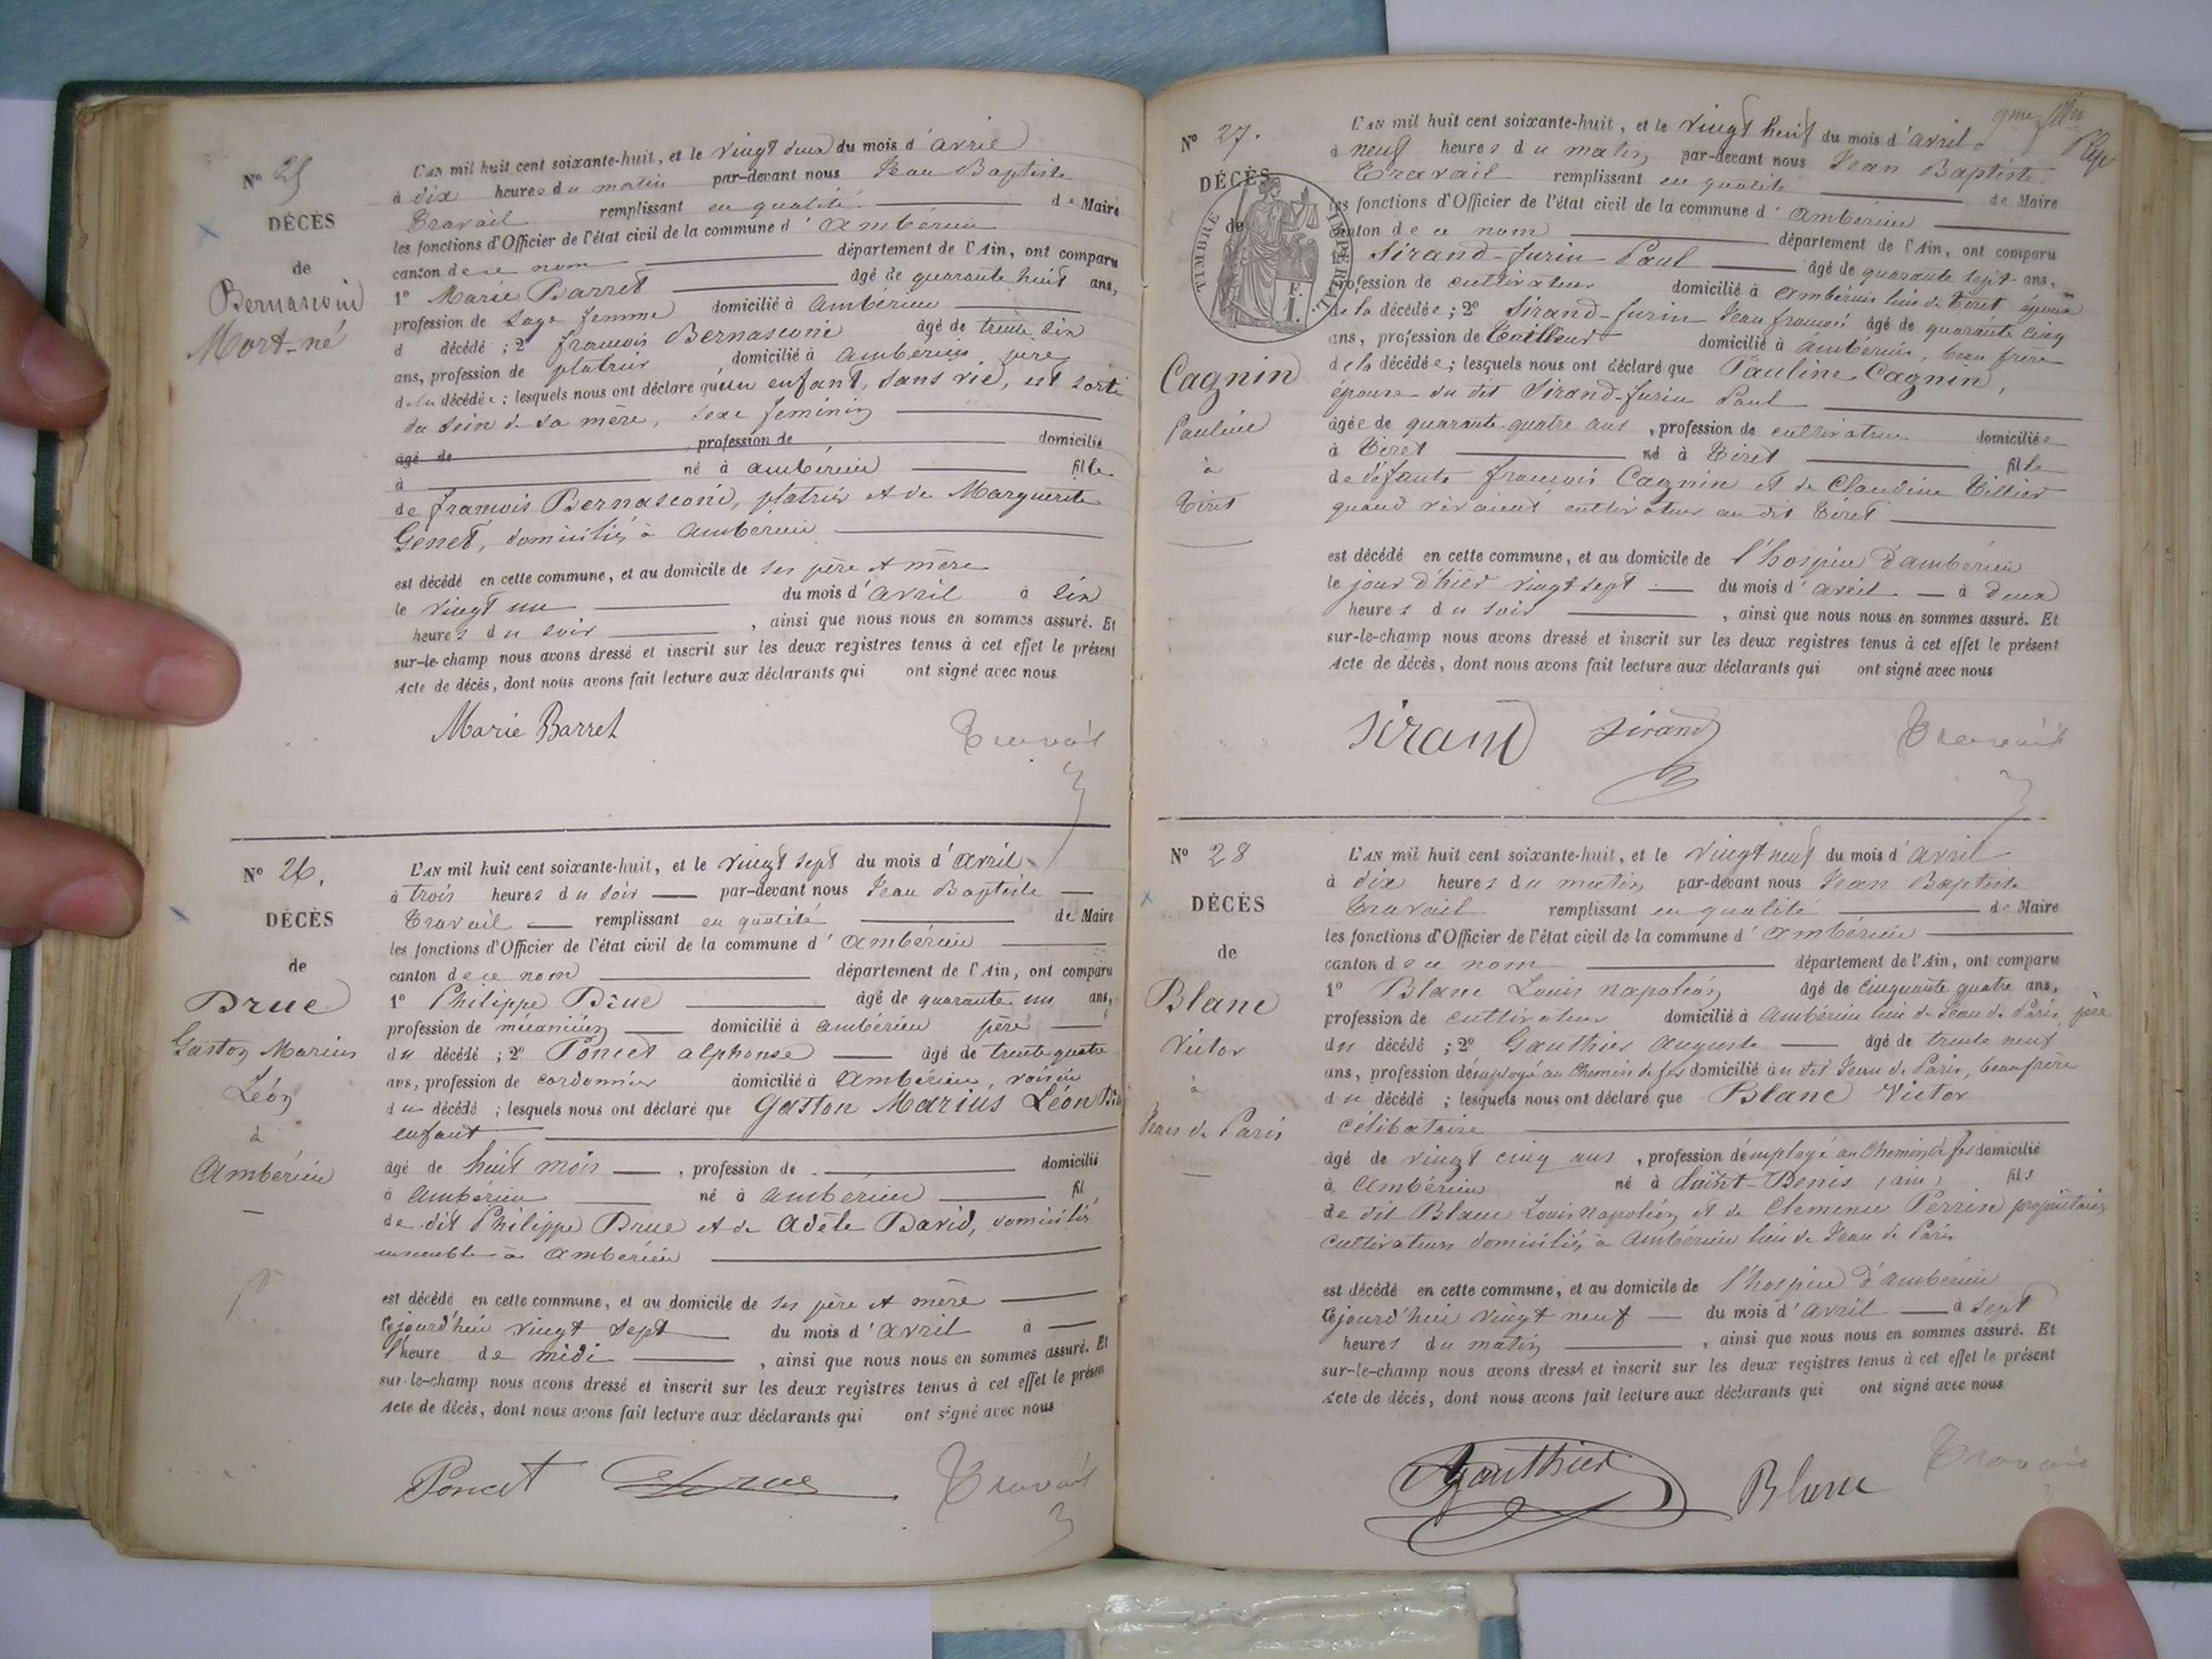 N° 25
DÉCÈS
de
Bernasconi
Mort-né
L'AN mil huit cent soixante-huit, et le vingt deux du mois d'avril
à dix heures du matin par-devant nous Jean Baptiste
Travail remplissant en qualité de Maire
les fonctions d'Officier de l'état civil de la commune d'Ambérieu
canton de ce nom département de l'Ain, ont comparu
1° Marie Barret âgé de quarante huit ans,
profession de sage femme domicilié à Ambérieu
d décédé ; 2° françois Bernasconi âgé de trente six
ans, profession de platrier domicilié à Ambérieu, père
de la décédée ; lesquels nous ont déclaré qu'un enfant, sans vie, est sorti
du sein de sa mère, sexe feminin
âgé de , profession de domicilié
à né à Ambérieu fille
de françois Bernasconi, platrier et de Marguerite
Genet, domiciliés à Ambérieu
est décédé en cette commune, et au domicile de ses père et mère
le vingt un du mois d'avril à six
heures du soir , ainsi que nous nous en sommes assuré. Et
sur-le-champ nous avons dressé et inscrit sur les deux registres tenus à cet effet le présent
Acte de décès, dont nous avons fait lecture aux déclarants qui ont signé avec nous
Marie Barret Travail
N° 26.
DÉCÈS
de
Brue
Gaston Marius
Léon
à
Ambérieu
L'AN mil huit cent soixante-huit, et le vingt sept du mois d'avril
à trois heures du soir par-devant nous Jean Baptiste
Travail remplissant en qualité de Maire
les fonctions d'Officier de l'état civil de la commune d'Ambérieu
canton de ce nom département de l'Ain, ont comparu
1° Philippe Brue âgé de quarante un ans,
profession de mécanicien domicilié à Ambérieu père
du décédé ; 2° Poncet alphonse âgé de trente quatre
ans, profession de cordonnier domicilié à Ambérieu, voisin
du décédé ; lesquels nous ont déclaré que Gaston Marius Léon
enfant
âgé de huit mois , profession de domicilié
à Ambérieu né à Ambérieu fil
de dit Philippe Brue et de Adèle David, domiciliés
ensemble à Ambérieu
est décédé en cette commune, et au domicile de ses père et mère
cejourd'hui vingt sept du mois d'avril à
l'heure de midi , ainsi que nous nous en sommes assuré. Et
sur-le-champ nous avons dressé et inscrit sur les deux registres tenus à cet effet le présen
Acte de décès, dont nous avons fait lecture aux déclarants qui ont signé avec nous
Poncet Brue Travail
N° 27.
DÉCÈS
de
TIMBRE IMPERIAL
1 F.
Cagnin
Pauline
à
Tiret
L'AN mil huit cent soixante-huit, et le vingt neuf du mois d'avril
à neuf heures du matin par-devant nous Jean Baptiste
Travail remplissant en qualité de Maire
les fonctions d'Officier de l'état civil de la commune d'Ambérieu
canton de ce nom département de l'Ain, ont comparu
1° Sirand-furin Paul âgé de quarante sept ans,
profession de cultivateur domicilié à Ambérieu lieu de Tiret époux
de la décédée ; 2° Sirand-furin Jean françois âgé de quarante cinq
ans, profession de tailleur domicilié à Ambérieu, beau frère
de la décédée ; lesquels nous ont déclaré que Pauline Cagnin,
épouse du dit Sirand-furin Paul
âgée de quarante quatre ans , profession de cultivateur domiciliée
à Tiret né à Tiret fille
de défunts françois Cagnin et de Claudine Tillier
quand vivaient cultivateurs au dit Tiret
est décédé en cette commune, et au domicile de l'hospice d'Ambérieu
le jour d'hier vingt sept du mois d'avril à deux
heures du soir , ainsi que nous nous en sommes assuré. Et
sur-le-champ nous avons dressé et inscrit sur les deux registres tenus à cet effet le présent
Acte de décès, dont nous avons fait lecture aux déclarants qui ont signé avec nous
Sirand Sirand Travail
N° 28
DÉCÈS
de
Blanc
Victor
à
Jean de Paris
L'AN mil huit cent soixante-huit, et le vingt neuf du mois d'avril
à dix heures du matin par-devant nous Jean Baptiste
Travail remplissant en qualité de Maire
les fonctions d'Officier de l'état civil de la commune d'Ambérieu
canton de ce nom département de l'Ain, ont comparu
1° Blanc Louis napoléon âgé de cinquante quatre ans,
profession de cultivateur domicilié à Ambérieu lieu de Jean de Paris, père
du décédé ; 2° Gauthier Auguste âgé de trente neuf
ans, profession d'employé au Chemin de fer domicilié au dit Jean de Paris, beau frère
du décédé ; lesquels nous ont déclaré que Blanc Victor
célibataire
âgé de vingt cinq ans , profession d'employé au Chemin de fer domicilié
à Ambérieu né à Saint-Denis (ain) fils
de dit Blanc Louis napoléon et de Clemence Perrin propriétaires
cultivateurs domiciliés à Ambérieu lieu de Jean de Paris
est décédé en cette commune, et au domicile de l'hospice d'Ambérieu
cejourd'hui vingt neuf du mois d'avril à sept
heures du matin , ainsi que nous nous en sommes assuré. Et
sur-le-champ nous avons dressé et inscrit sur les deux registres tenus à cet effet le présent
Acte de décès, dont nous avons fait lecture aux déclarants qui ont signé avec nous
Gauthier Blanc Travail